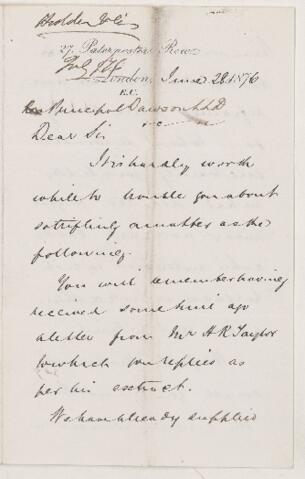 27, Paternoster Row
London, June 28 1876
E.C.
Principal Dawson LLD
Dear Sir
It is hardly worth
while to trouble you about
so trifling a matter as the
following.
You will remember having
received some time ago
a letter from Mr H R Taylor
to which you replies as
per his extract.
We have already supplied